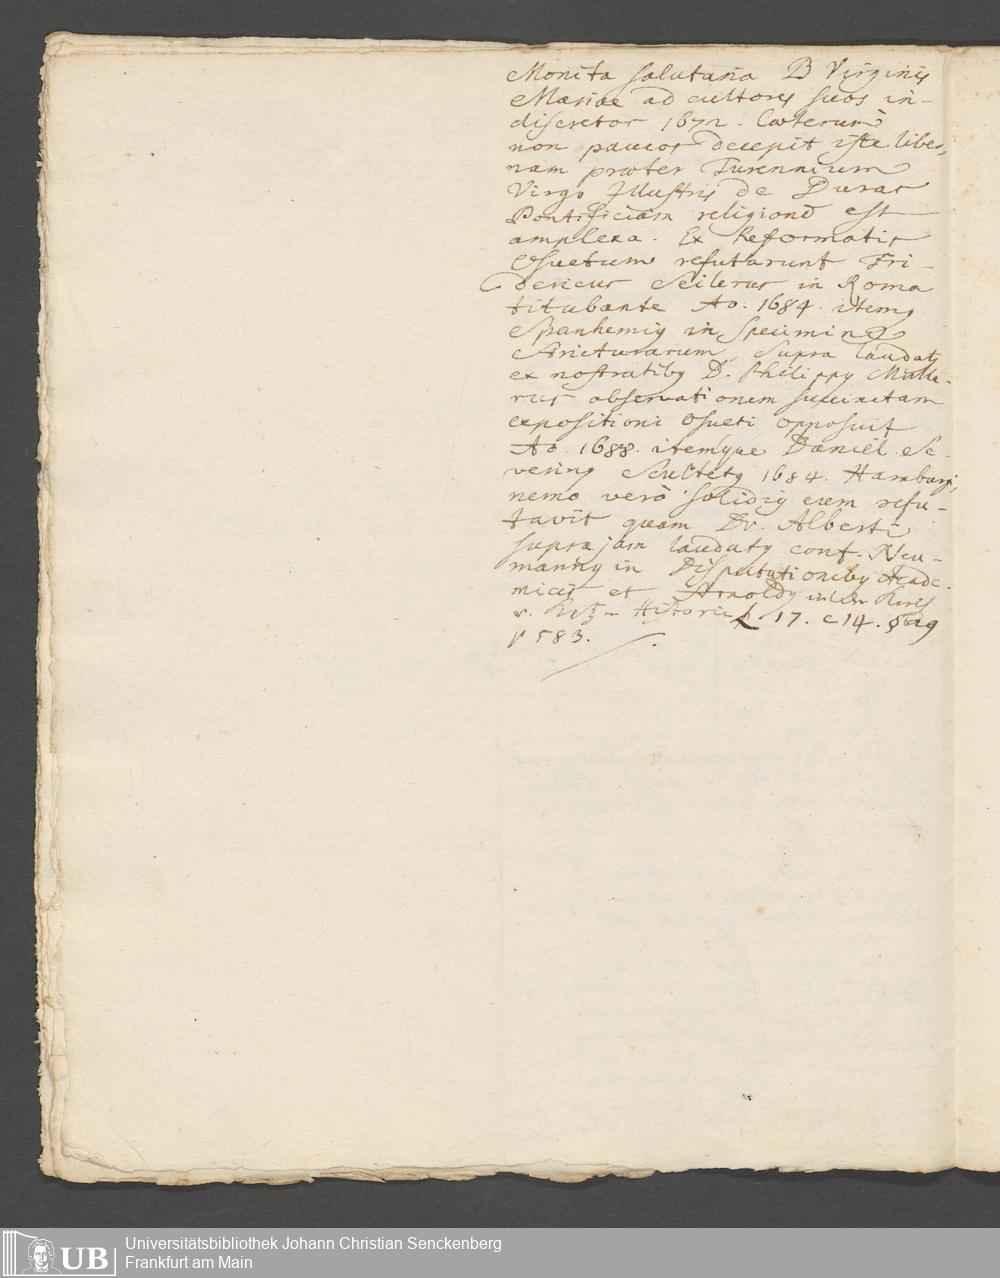 Monita salutaria B Virginis
Mariae ad cultores suos in-
discretos 1672. Coeterum
non paucos decepit iste liber,
nam praeter Turennium
Virgo Illustris de Duras
Pontificiam religione est
amplexa. Ex Reformatis
Osuetum refutarunt Fri-
dericus Seilerus in Roma
titubante Ao. 1684. item
Spanhemiq in specimine
Stricturarum, supra laudatq
ex nostratibq D. Philippq Mülle-
rus observationem succinctam
expositioni Osueti opposuit
Ao. 1688. itemque Daniel Se-
verinq Scultetq 1684. Hamburgi,
nemo vero solidiq eum refu-
tavit quam Dr. Alberti
supra jam laudatq conf. Neu-
mannq in Disputationibq Acade-
micis et Arnoldq in der Kirch
v. Kez- Historie L 17. c 14. pag
p 583.
UB
Universitätsbibliothek Johann Christian Senckenberg
Frankfurt am Main